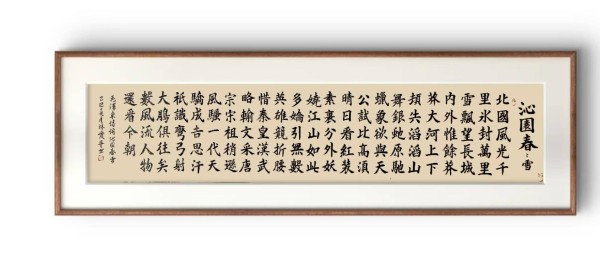 沁園春:雪
北國風光千
里冰封萬里
雪飄望長城
內外惟餘莽
莽大河上下
頓失滔滔山
舞銀蛇原馳
蠟象欲與天
公試比高須
晴日看紅裝
素裹分外妖
嬈江山如此
多嬌引無數
英雄競折腰
惜秦皇漢武
略輸文采唐
宗宋祖稍遜
風騷一代天
驕成吉思汗
祇識彎弓射
大鵰俱往矣
數風流人物
還看今朝
毛澤東詩詞沁園春雪